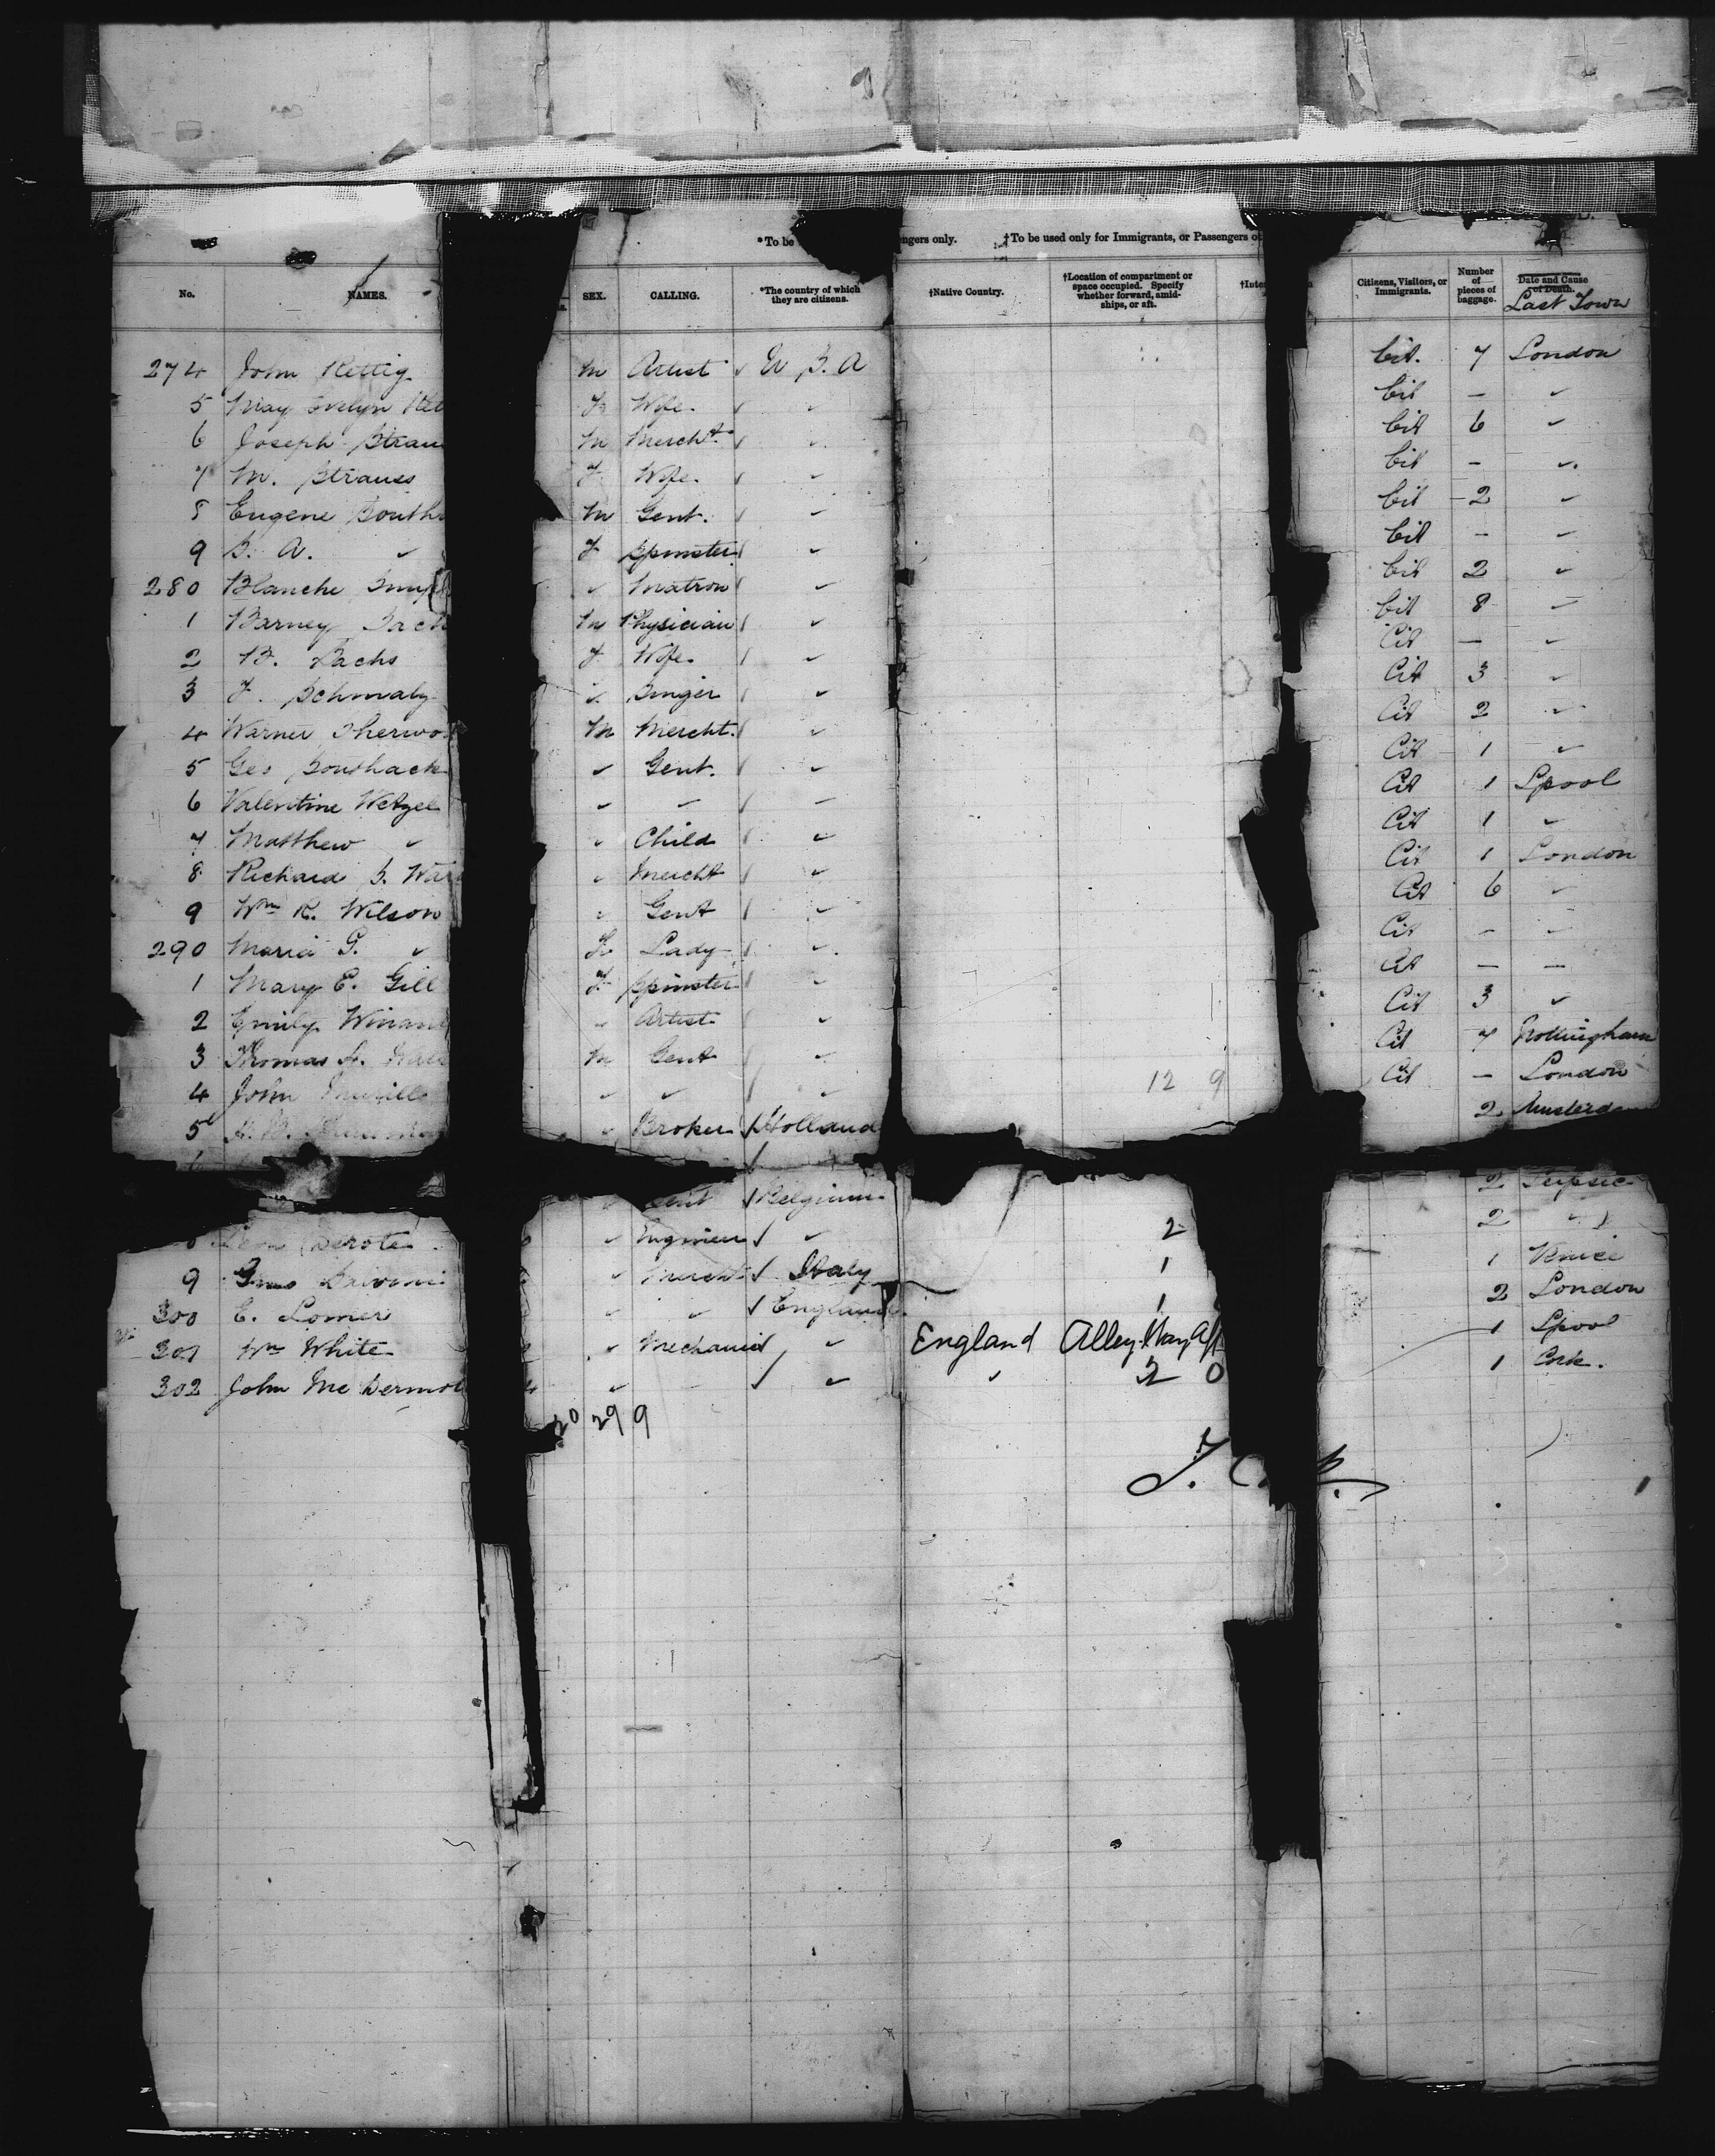 *To be ngers only. †To be used only for Immigrants, or Passengers o
No. NAMES. SEX. CALLING. *The country of which they are citizens. †Native Country. †Location of compartment or space occupied. Specify whether forward, amidships, or aft. †Inte Citizens, Visitors, or Immigrants. Number of pieces of baggage. Date and Cause of Death. Last Town
274 John Rettig M Artist ✓ U. S. A Cit. 7 London
5 May Evelyn Ret F Wife. ✓ ✓ Cit – ✓
6 Joseph Strau M Mercht. ✓ ✓ Cit 6 ✓
7 M. Strauss F Wife. ✓ ✓ Cit – ✓
8 Eugene South M Gent. ✓ ✓ Cit 2 ✓
9 S. A. ✓ F Spinster ✓ ✓ Cit – ✓
280 Blanche ✓ Matron ✓ ✓ Cit 2 ✓
1 Barney Sach M Physician ✓ ✓ Cit 8 ✓
2 B. Sachs F Wife. ✓ ✓ Cit – ✓
3 F. Schmaly ✓ Singer ✓ ✓ Cit 3 ✓
4 Warner Sherwo M Mercht. ✓ ✓ Cit 2 ✓
5 Geo Southack ✓ Gent. ✓ ✓ Cit 1 ✓
6 Valentine Wetzel ✓ ✓ ✓ ✓ Cit 1 Lpool
7 Matthew ✓ ✓ Child ✓ ✓ Cit 1 ✓
8 Richard S. War ✓ Mercht ✓ ✓ Cit 1 London
9 Wm R. Wilson ✓ Gent ✓ ✓ Cit 6 ✓
290 Maria G. ✓ F. Lady ✓ ✓ Cit – ✓
1 Mary E. Gill F Spinster ✓ ✓ Cit – –
2 Emily Winan ✓ Artist ✓ ✓ Cit 3 ✓
3 Thomas A. M Gent ✓ ✓ Cit 7 Nottingham
4 John ✓ ✓ ✓ ✓ 12 9 Cit – London
5 ✓ Broker ✓ Holland 2 Amsterda
✓ Gent ✓ Belgium 2 Leipsic
Leon Derote ✓ Engineer ✓ ✓ 2 2 ✓
9 ✓ Mercht ✓ Italy 1 1 Venice
300 E. Lomer ✓ ✓ ✓ England 1 2 London
301 Wm White ✓ Mechanic ✓ ✓ England Alley Way Aft 1 Lpool
302 John McDermot ✓ ✓ ✓ ✓ 2 0 1 Cork.
20 29 9